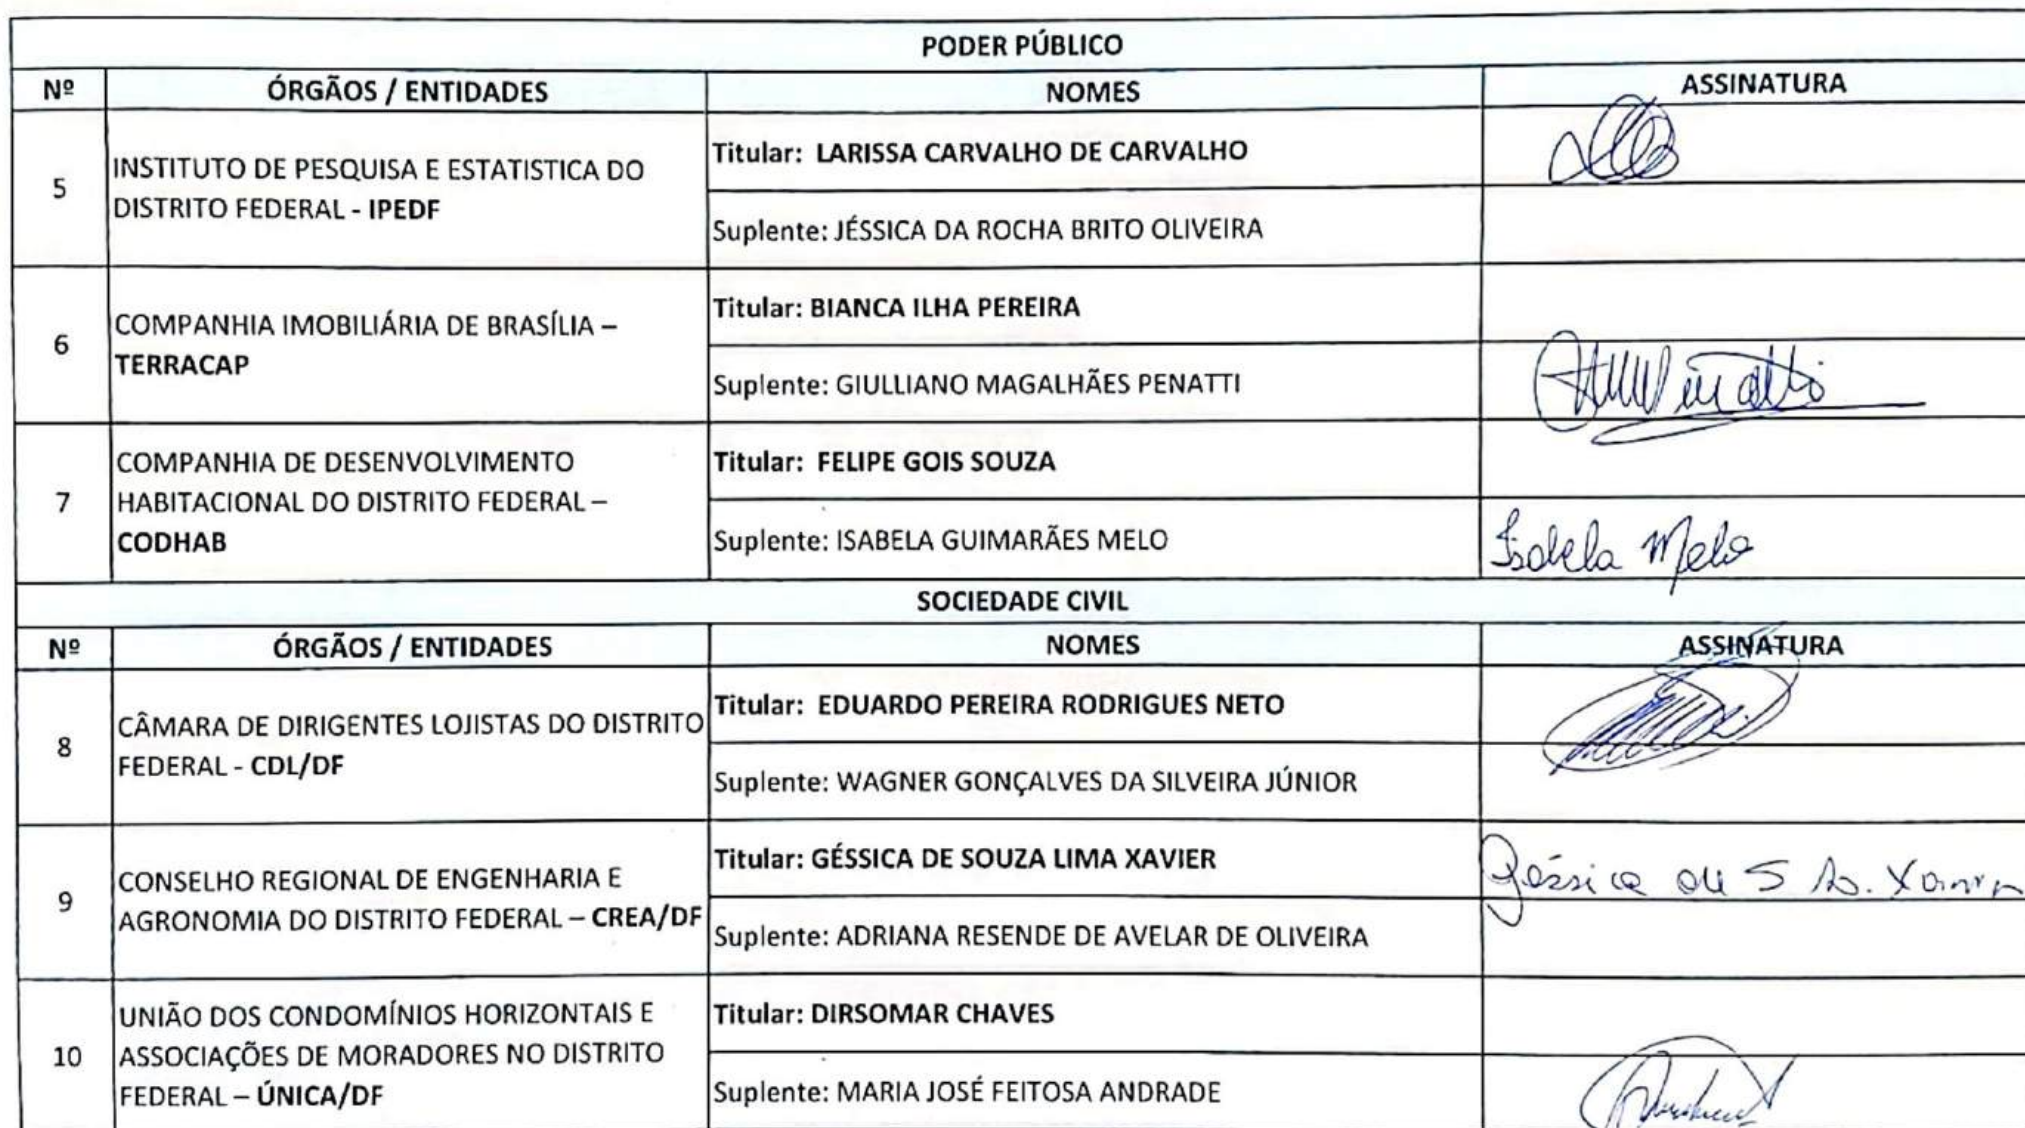 PODER PÚBLICO
Nº ÓRGÃOS / ENTIDADES NOMES ASSINATURA
5
INSTITUTO DE PESQUISA E ESTATISTICA DO
DISTRITO FEDERAL - IPEDF
Titular: LARISSA CARVALHO DE CARVALHO
Suplente: JÉSSICA DA ROCHA BRITO OLIVEIRA
6
COMPANHIA IMOBILIÁRIA DE BRASÍLIA –
TERRACAP
Titular: BIANCA ILHA PEREIRA
Suplente: GIULLIANO MAGALHÃES PENATTI
7
COMPANHIA DE DESENVOLVIMENTO
HABITACIONAL DO DISTRITO FEDERAL –
CODHAB
Titular: FELIPE GOIS SOUZA
Suplente: ISABELA GUIMARÃES MELO
Isabela Melo
SOCIEDADE CIVIL
Nº ÓRGÃOS / ENTIDADES NOMES ASSINATURA
8
CÂMARA DE DIRIGENTES LOJISTAS DO DISTRITO
FEDERAL - CDL/DF
Titular: EDUARDO PEREIRA RODRIGUES NETO
Suplente: WAGNER GONÇALVES DA SILVEIRA JÚNIOR
9
CONSELHO REGIONAL DE ENGENHARIA E
AGRONOMIA DO DISTRITO FEDERAL – CREA/DF
Titular: GÉSSICA DE SOUZA LIMA XAVIER
Géssica de S
Suplente: ADRIANA RESENDE DE AVELAR DE OLIVEIRA
10
UNIÃO DOS CONDOMÍNIOS HORIZONTAIS E
ASSOCIAÇÕES DE MORADORES NO DISTRITO
FEDERAL – ÚNICA/DF
Titular: DIRSOMAR CHAVES
Suplente: MARIA JOSÉ FEITOSA ANDRADE